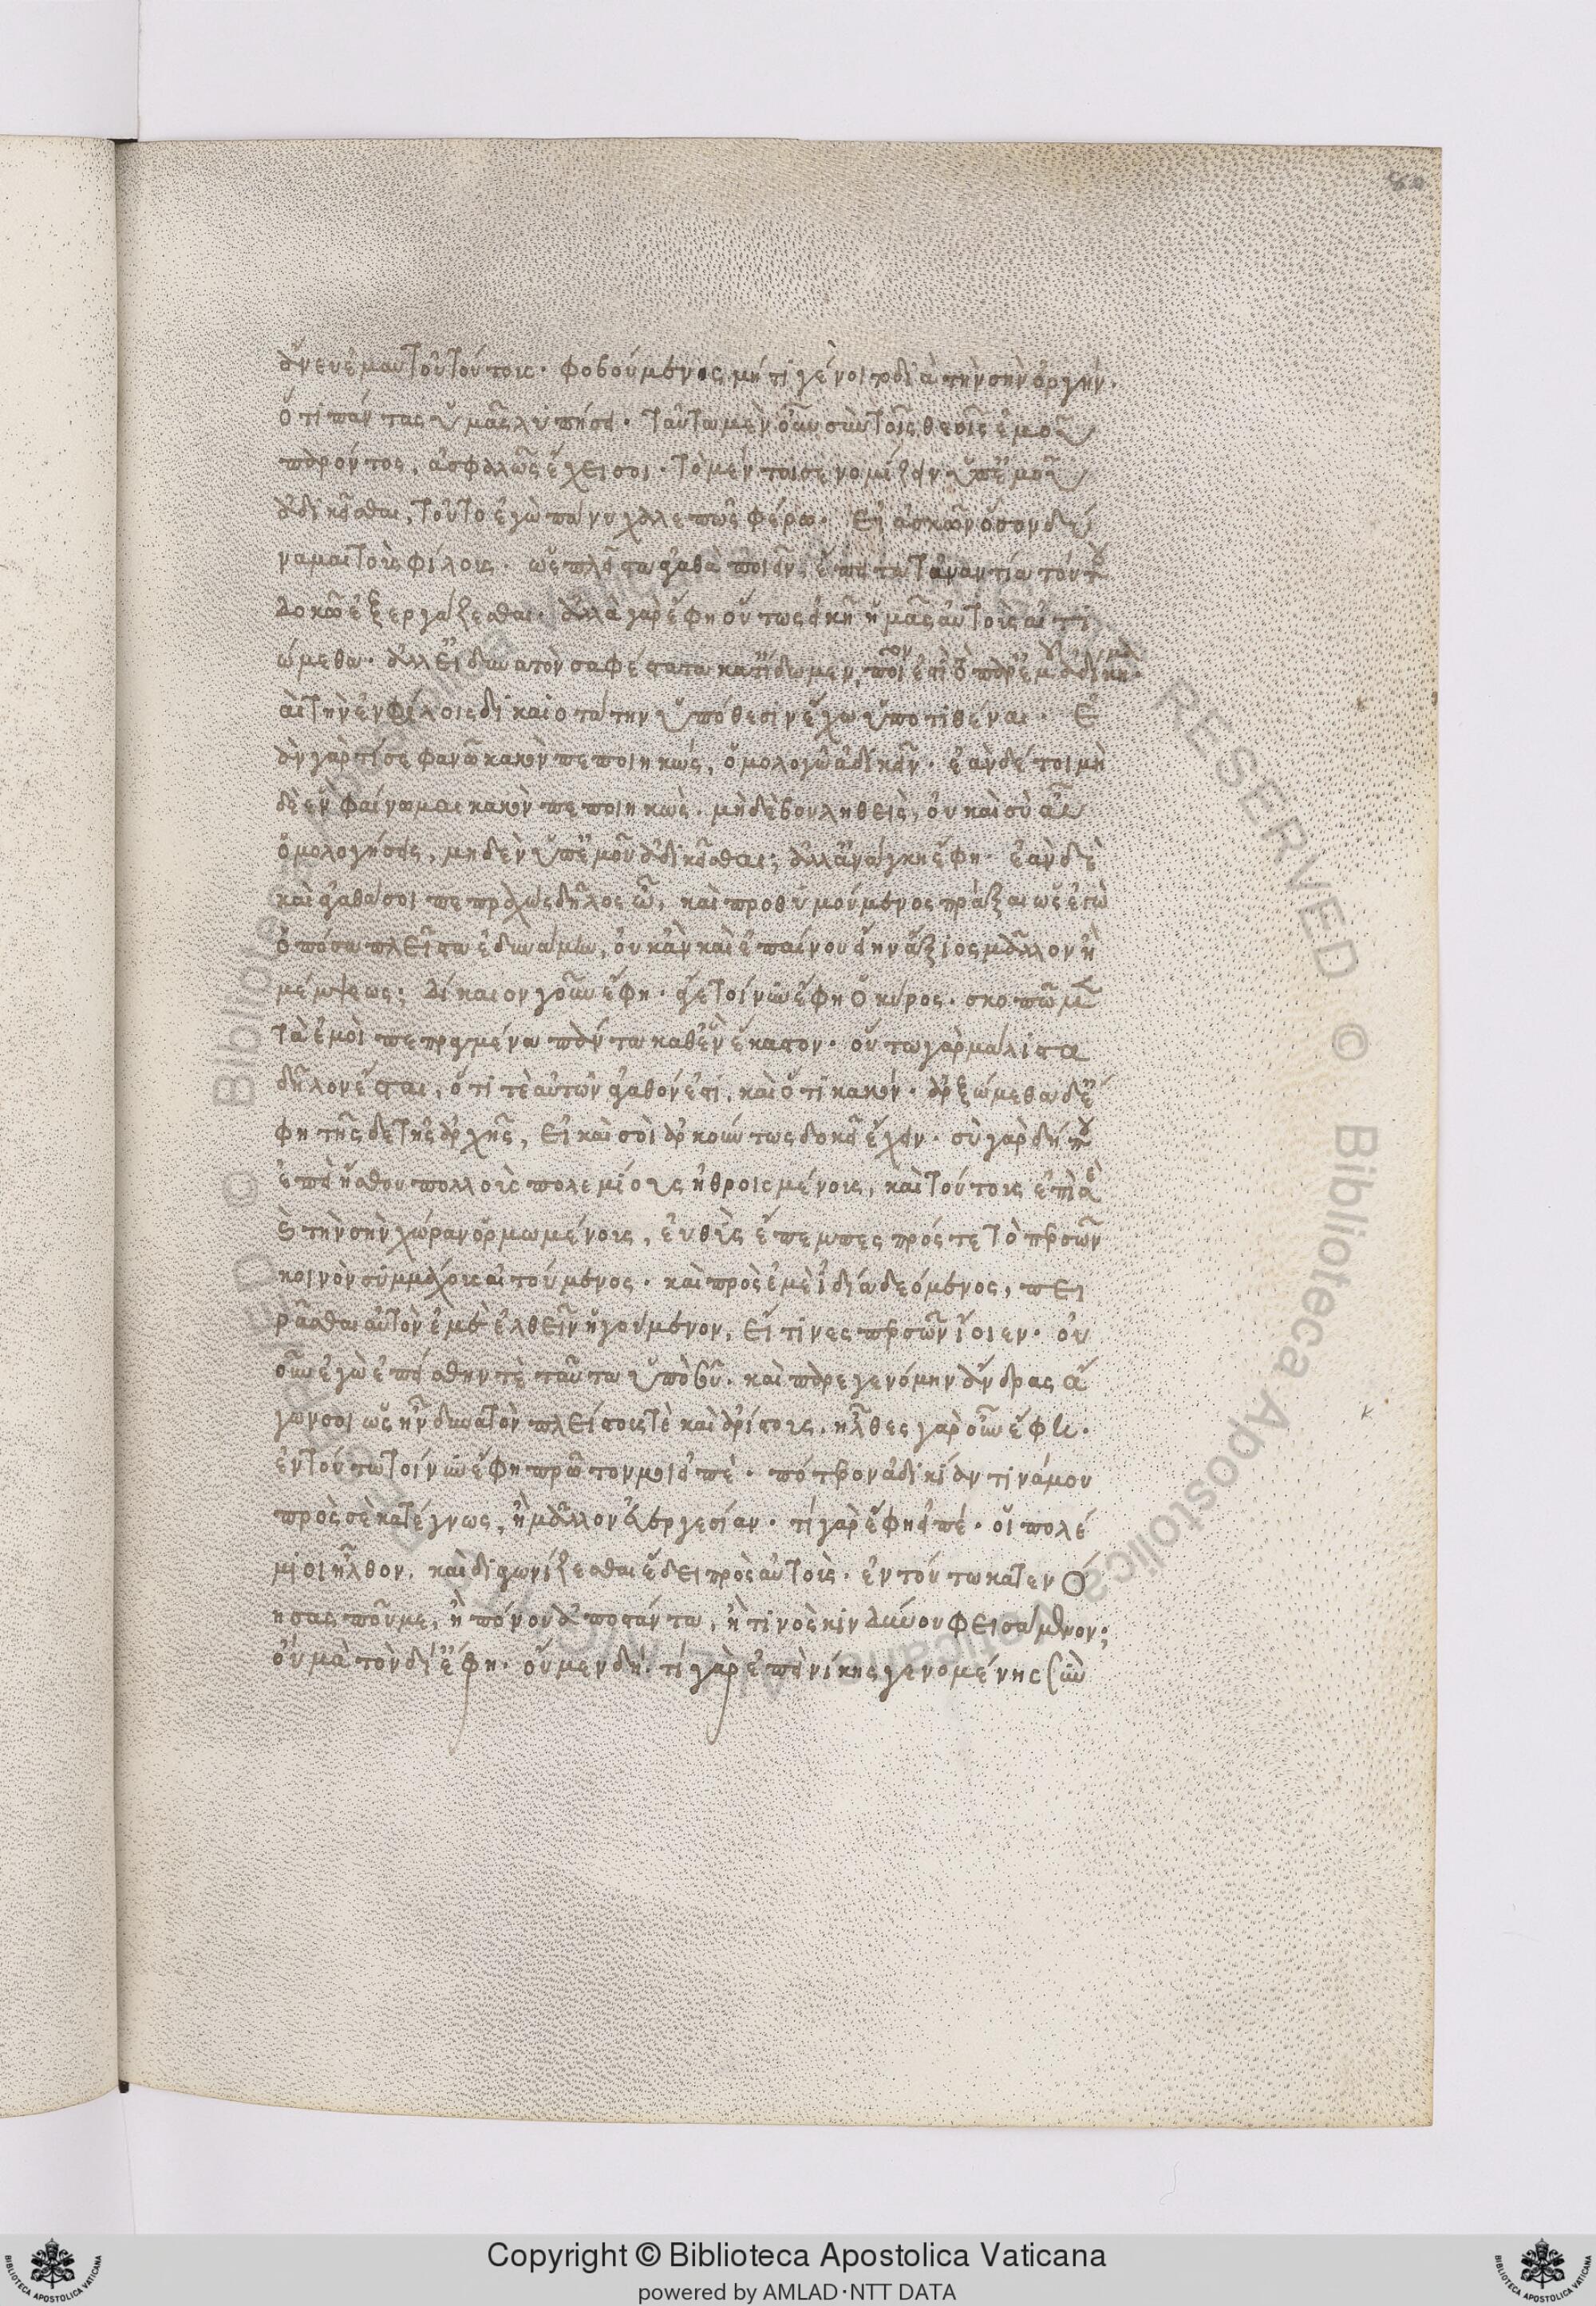 80
ἄνευ ἐμαυτοῦ τούτοις. φοβούμενος μή τι γένοιτο διὰ τὴν σὴν ὀργήν.
ὅτι πάντας ὑμᾶς λυπήσει. ταῦτα μὲν οὖν σὺν τοῖς θεοῖς ἐμοῦ
παρόντος, ἀσφαλῶς ἕχει σοι. τὸ μέν τοι σὲ νομίζειν ὑπ' ἐμοῦ
ἀδικεῖσθαι, τοῦτο ἐγὼ πάνυ χαλεπῶς φέρω. εἰ ἀσκῶν ὅσον δύ
ναμαι τοὺς φίλους. ὡς πλεῖστα ἀγαθὰ ποιεῖν, ἔπειτα τἀναντία τούτου
δοκῶ ἐξεργάζεσθαι. ἀλλὰ γὰρ ἔφη οὕτως εἰκῆ ἡμᾶς αὐτοὺς αἰτι
ώμεθα. ἀλλ' εἰ δυνατὸν σαφέστατα κατίδωμεν, ποῖόν ἐστι τὸ παρ' ἐμοῦ ἀδίκημα.
αἱ τὴν ἐν φίλοις δικαιοτάτην ὑπόθεσιν ἔχω ὑποτιθέναι. ἐ
ὰν γάρ τί σε φανῶ κακὸν πεποιηκώς, ὁμολογῶ ἀδικεῖν. ἐὰν δέ τοι μη
δὲ ἓν φαίνωμαι κακὸν πεποιηκὼς. μὴ δὲ βουληθεὶς, οὐ καὶ σὺ αὖ
ὁμολογήσεις, μηδὲν ὑπ' ἐμοῦ ἀδικεῖσθαι; ἀλλ' ἀνάγκη ἔφη. ἐὰν δὲ
καὶ ἀγαθά σοι πεπραχὼς δῆλος ὦ, καὶ προθυμούμενος πρᾶξαι ὡς ἐγὼ
ὁπόσα πλεῖστα ἐδυνάμην, οὐκ ἂν καὶ ἐπαίνου εἴην ἄξιος μᾶλλον ἢ
μέμψεως; δίκαιον γοῦν ἔφη. ἄγε τοίνυν ἔφη ὁ κύρος. σκοπῶμεν
τὰ ἐμοὶ πεπραγμένα πάντα καθ' ἓν ἕκαστον. οὕτω γὰρ μάλιστα
δῆλον ἔσται, ὅ τι τὲ αὐτῶν ἀγαθόν ἐστι, καὶ ὅ τι κακόν. ἀρξώμεθα δ' ἔ
φη τῆς δε τῆς ἀρχῆς, εἰ καὶ σοὶ ἀρκούντως δοκεῖ ἔχειν. σὺ γὰρ δήπου
ἐπεὶ ἤσθου πολλοὺς πολεμίους ἠθροισμένους, καὶ τούτους ἐπὶ σὲ
καὶ τὴν σὴν χώραν ὁρμωμένους, εὐθὺς ἔπεμπες πρός τε τὸ περσῶν
κοινὸν συμμάχους αἰτούμενος. καὶ πρὸς ἐμὲ ἰδία δεόμενος, πει
ρᾶσθαι αὐτὸν ἐμὲ ἐλθεῖν ἡγούμενον, εἴ τινες περσῶν ἴοιεν. οὐκ
οὖν ἐγὼ ἐπείσθην τὲ ταῦτα ὑπὸ σοῦ. καὶ παρεγενόμην ἄνδρας ἄ
γων σοι ὡς ἦν δυνατὸν πλείστους τὲ καὶ ἀρίστους. ἦλθες γὰρ οὖν ἔφη.
ἐν τούτω τοίνυν ἔφη πρῶτον μοι εἰπὲ. πότερον ἀδικίαν τινά μου
πρὸς σὲ κατέγνως, ἢ μᾶλλον εὐεργεσίαν. τί γὰρ ἔφη εἰπέ. οἱ πολέ
μιοι ἦλθον. καὶ διαγωνίζεσθαι ἔδει πρὸς αὐτοὺς. ἐν τούτω κατενό
ησας ποῦ με, ἢ πόνου ἀποστάντα, ἤ τινος κινδύνου φεισάμενον;
οὐ μὰ τὸν δί' ἔφη. οὐ μὲν δή. τί γὰρ ἐπεὶ νίκης γενομένης σὺν